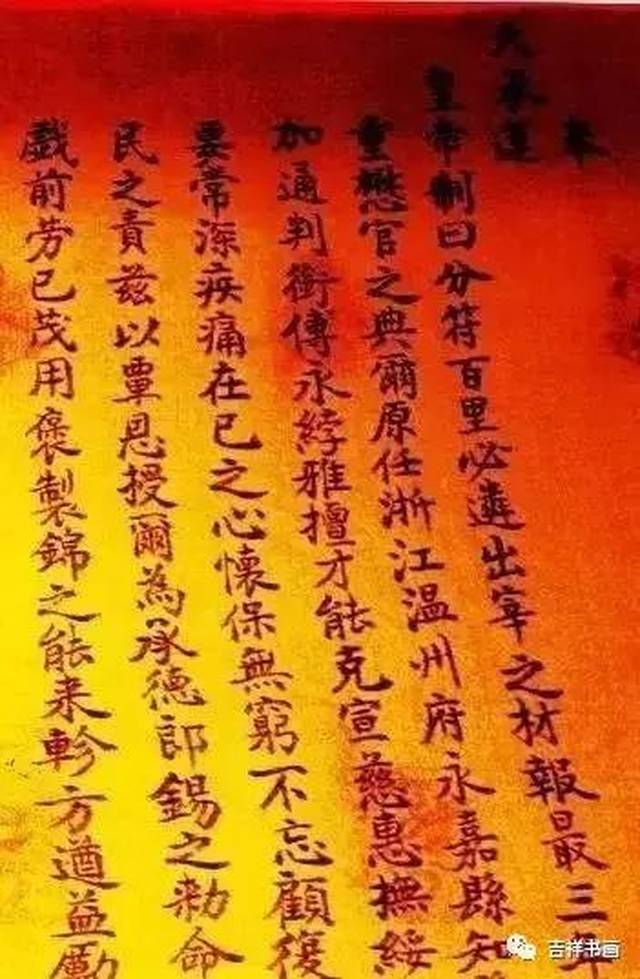 奉
天承運
皇帝制曰分符百里必遴出宰之材報最三
重懋官之典爾原任浙江温州府永嘉縣知
加通判銜傅永綍雅擅才能克宣慈惠撫綏
要常深疾痛在已之心懷保無窮不忘顧復
民之責兹以覃恩授爾為承德郎錫之勅命
戲前芳已茂用褒製錦之能来軫方遒益勵
吉祥书画